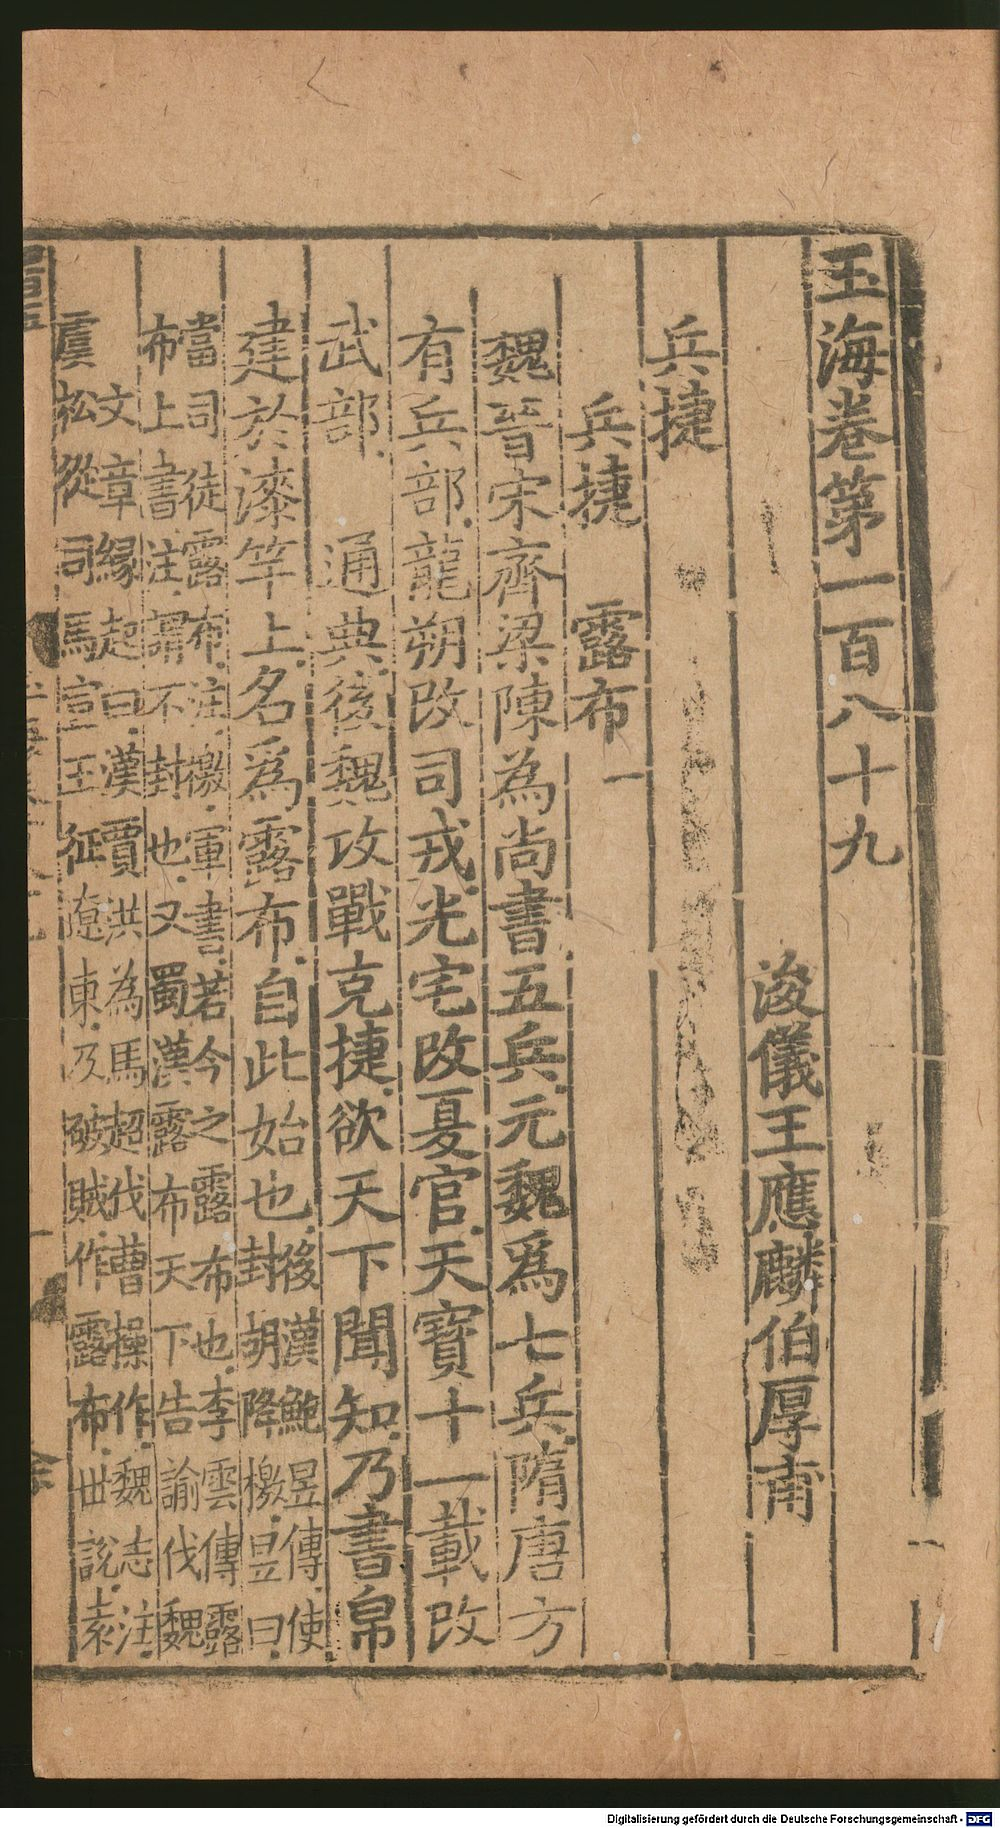 玉海卷第一百八十九
浚儀王應麟伯厚甫
兵捷
兵捷 露布一
魏晉宋齊梁陳為尚書五兵元魏爲七兵隋唐方
有兵部龍朔改司戎光宅改夏官天寶十一載改
武部 通典後魏攻戰克捷欲天下聞知乃書帛
建於漆竿上名爲露布自此始也後漢鮑昱傳使封胡降檄昱曰
當司徒露布注檄軍書若今之露布也李雲傳露
布上書注謂不封也又蜀漢露布天下告諭伐魏
文章緣起曰漢賈洪為馬超伐曹操作魏志注
虞松從司馬宣王征遼東及破賊作露布世說素
Digitalisierung gefördert durch die Deutsche Forschungsgemeinschaft - DFG